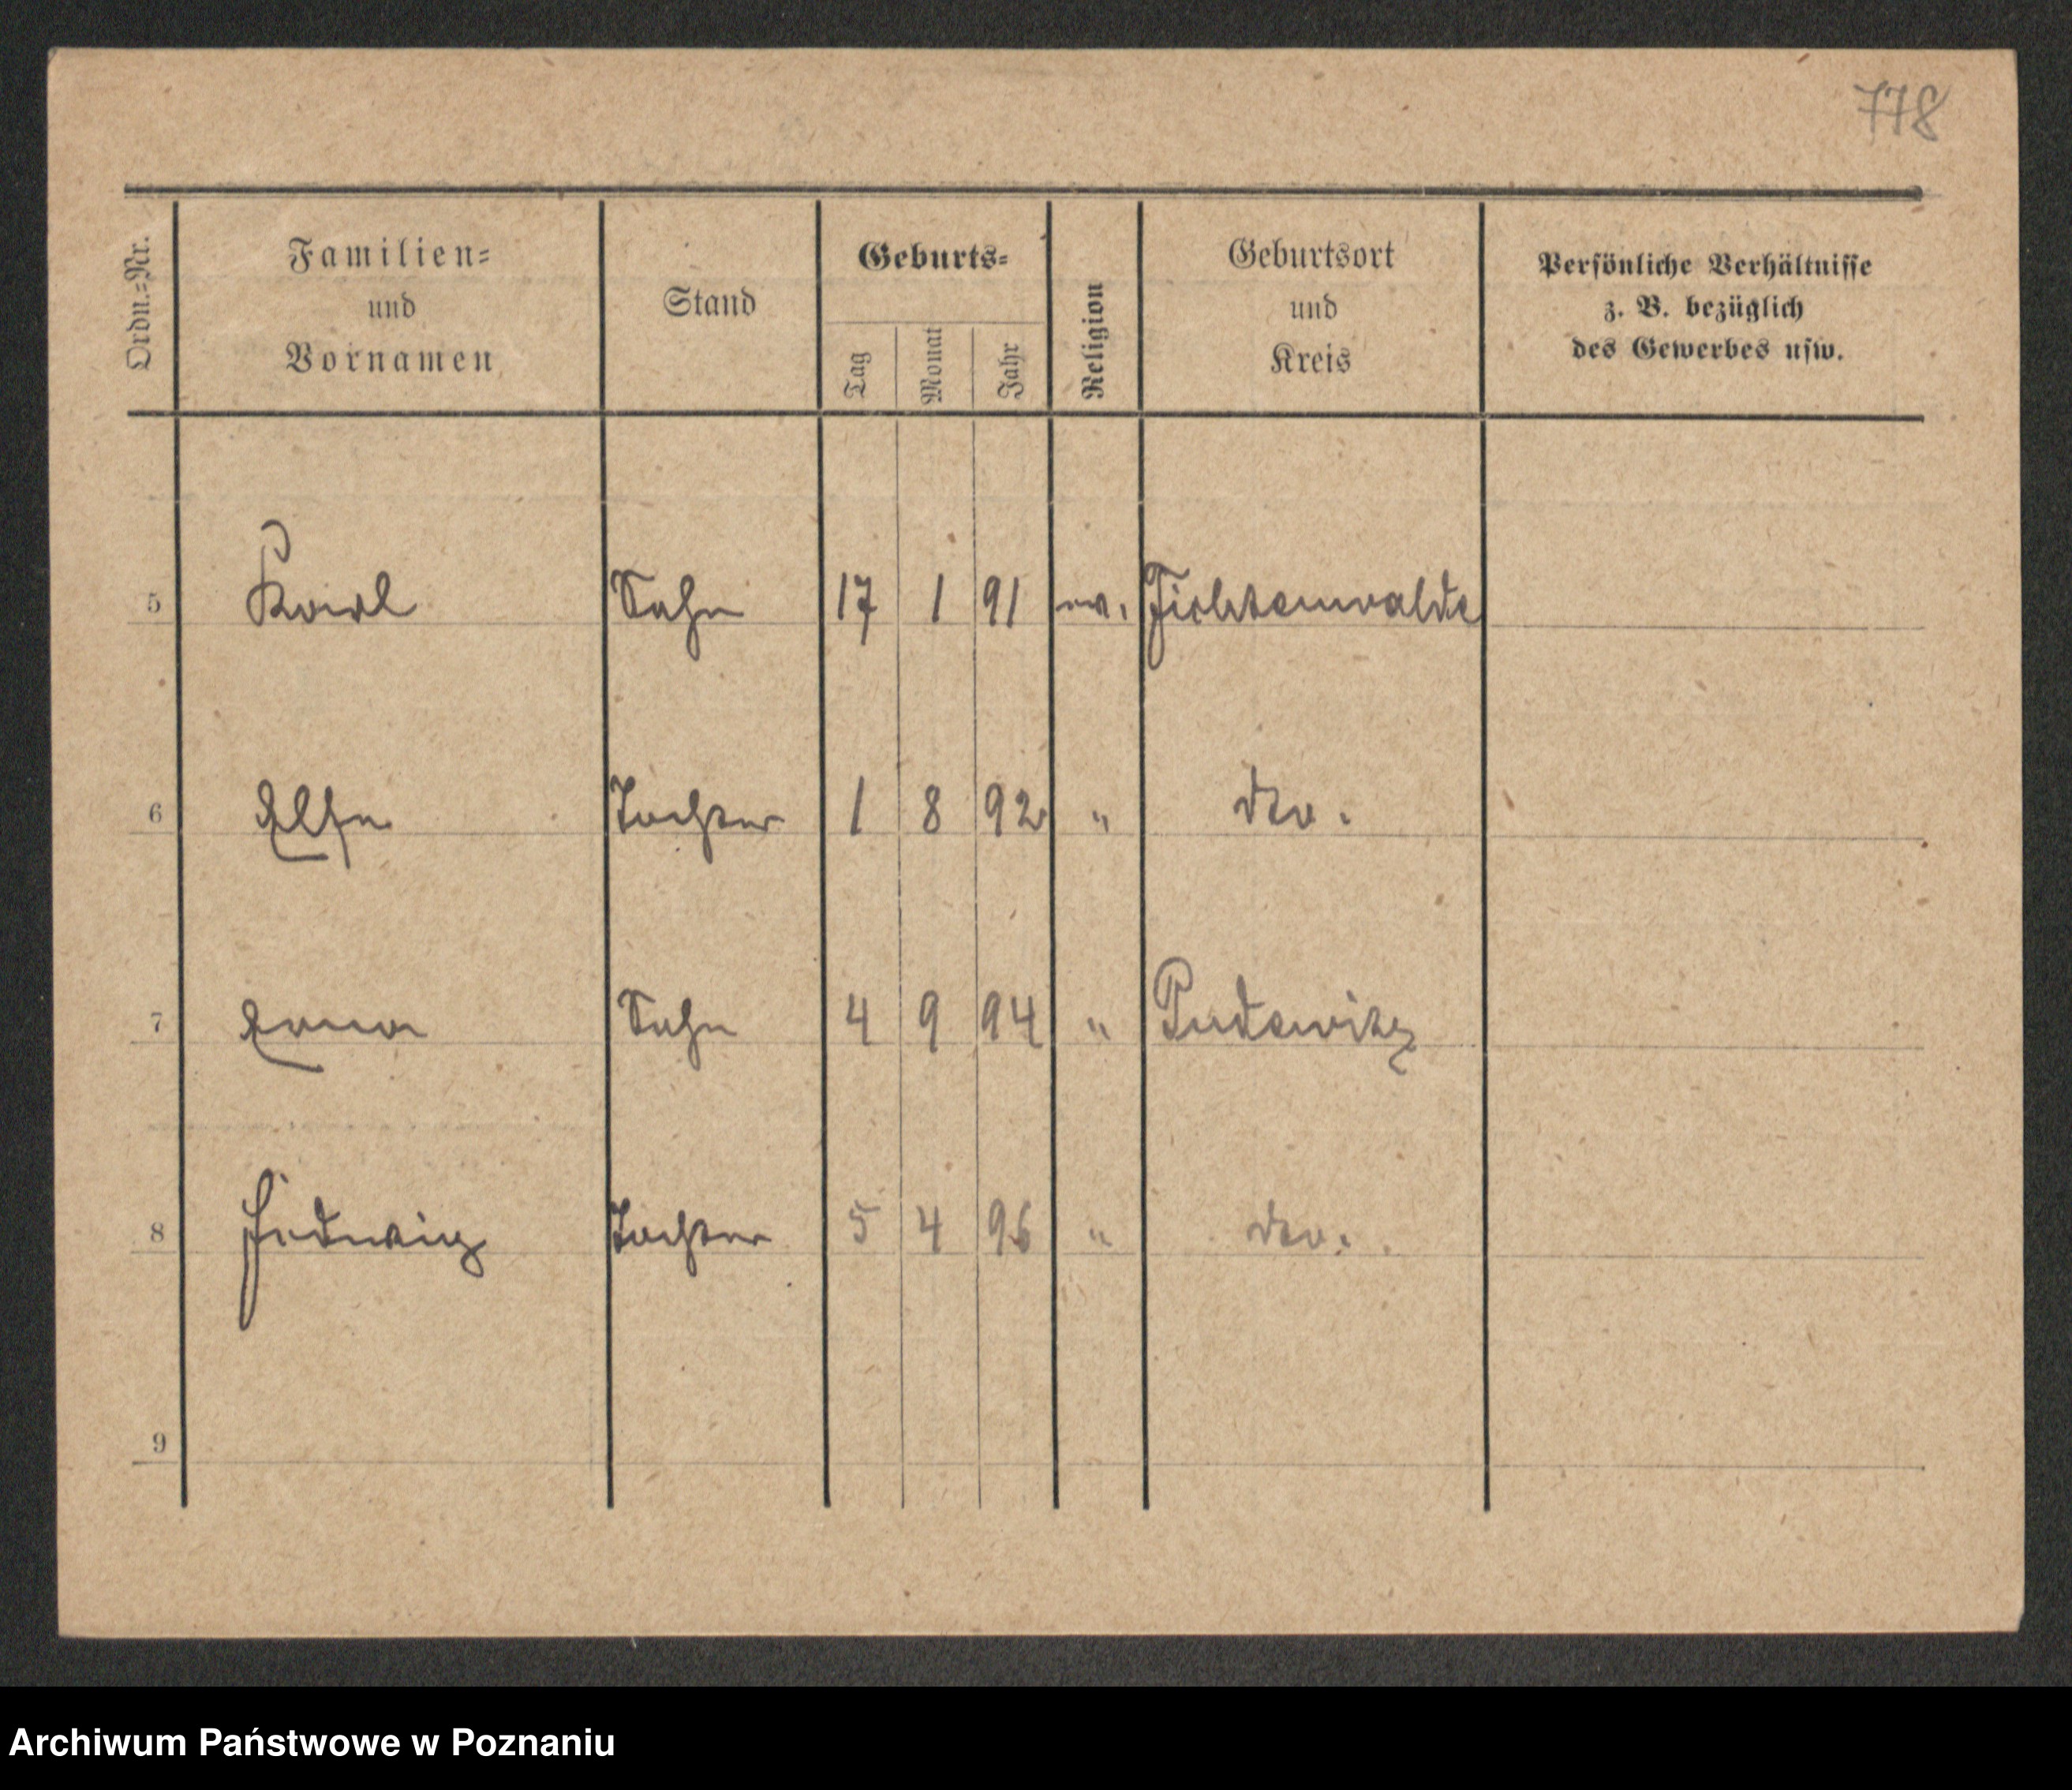 778
Ordn.=Nr.
Familien=
und
Vornamen
Stand
Geburts=
Tag Monat Jahr
Religion
Geburtsort
und
Kreis
Persönliche Verhältnisse
z. B. bezüglich
des Gewerbes usw.
5 Karl Sohn 17 1 91 ev. Fichtenwalde
6 Else Tochter 1 8 92 " dto.
7 Sohn 4 9 94 " Pudewitz
8 Hedwig Tochter 5 4 96 " dto.
9
Archiwum Państwowe w Poznaniu